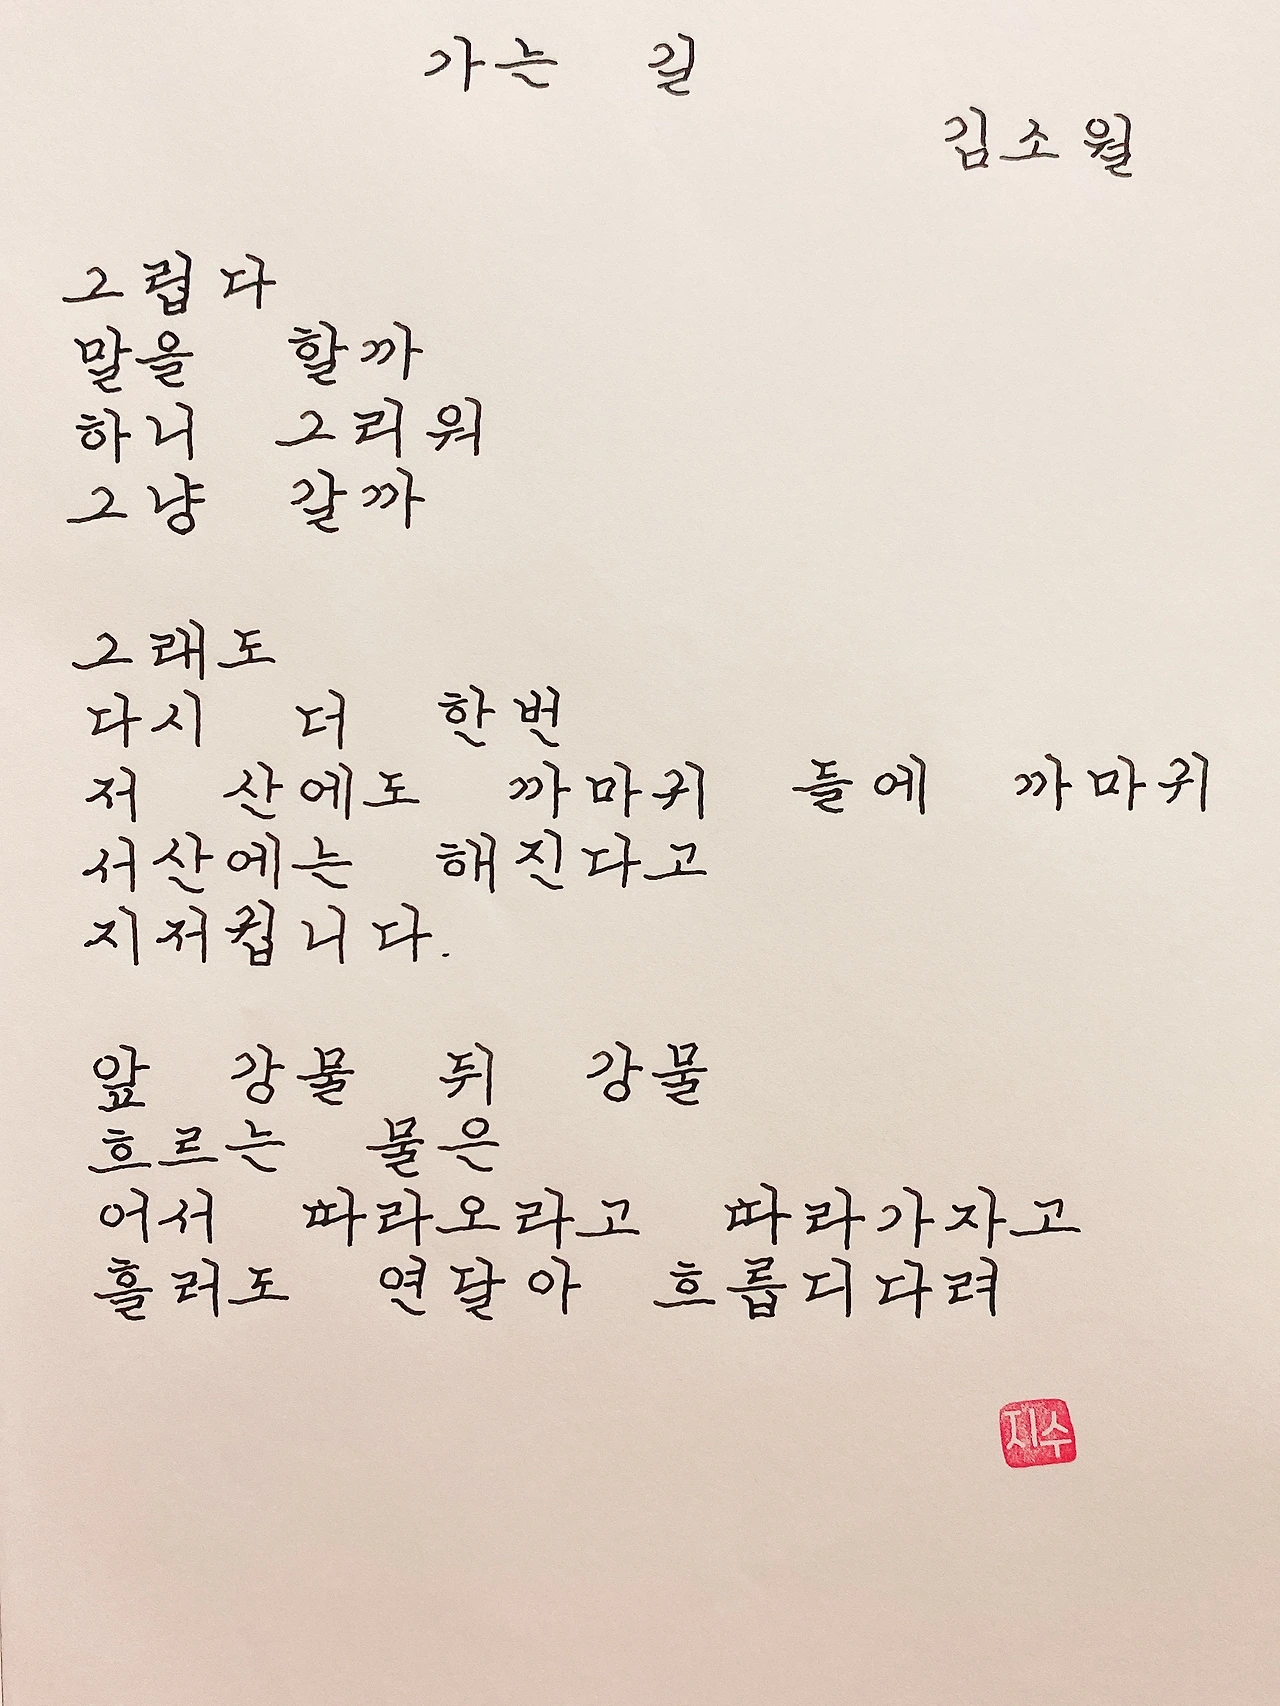 가는 길
김소월
그립다
말을 할까
하니 그리워
그냥 갈까
그래도
다시 더 한번
저 산에도 까마귀 들에 까마귀
서산에는 해진다고
지저귑니다.
앞 강물 뒤 강물
흐르는 물은
어서 따라오라고 따라가자고
흘러도 연달아 흐릅디다려
지수